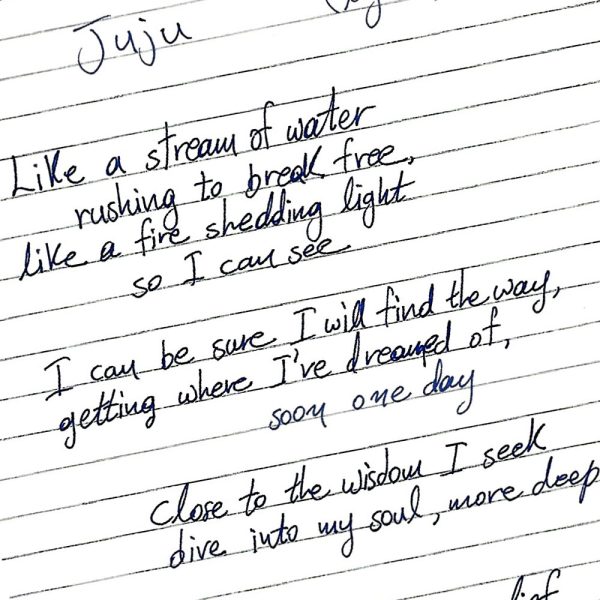 Juju
Like a stream of water
rushing to break free,
like a fire shedding light
so I can see
I can be sure I will find the way,
getting where I've dreamed of,
soon one day
Close to the wisdom I seek
dive into my soul, more deep